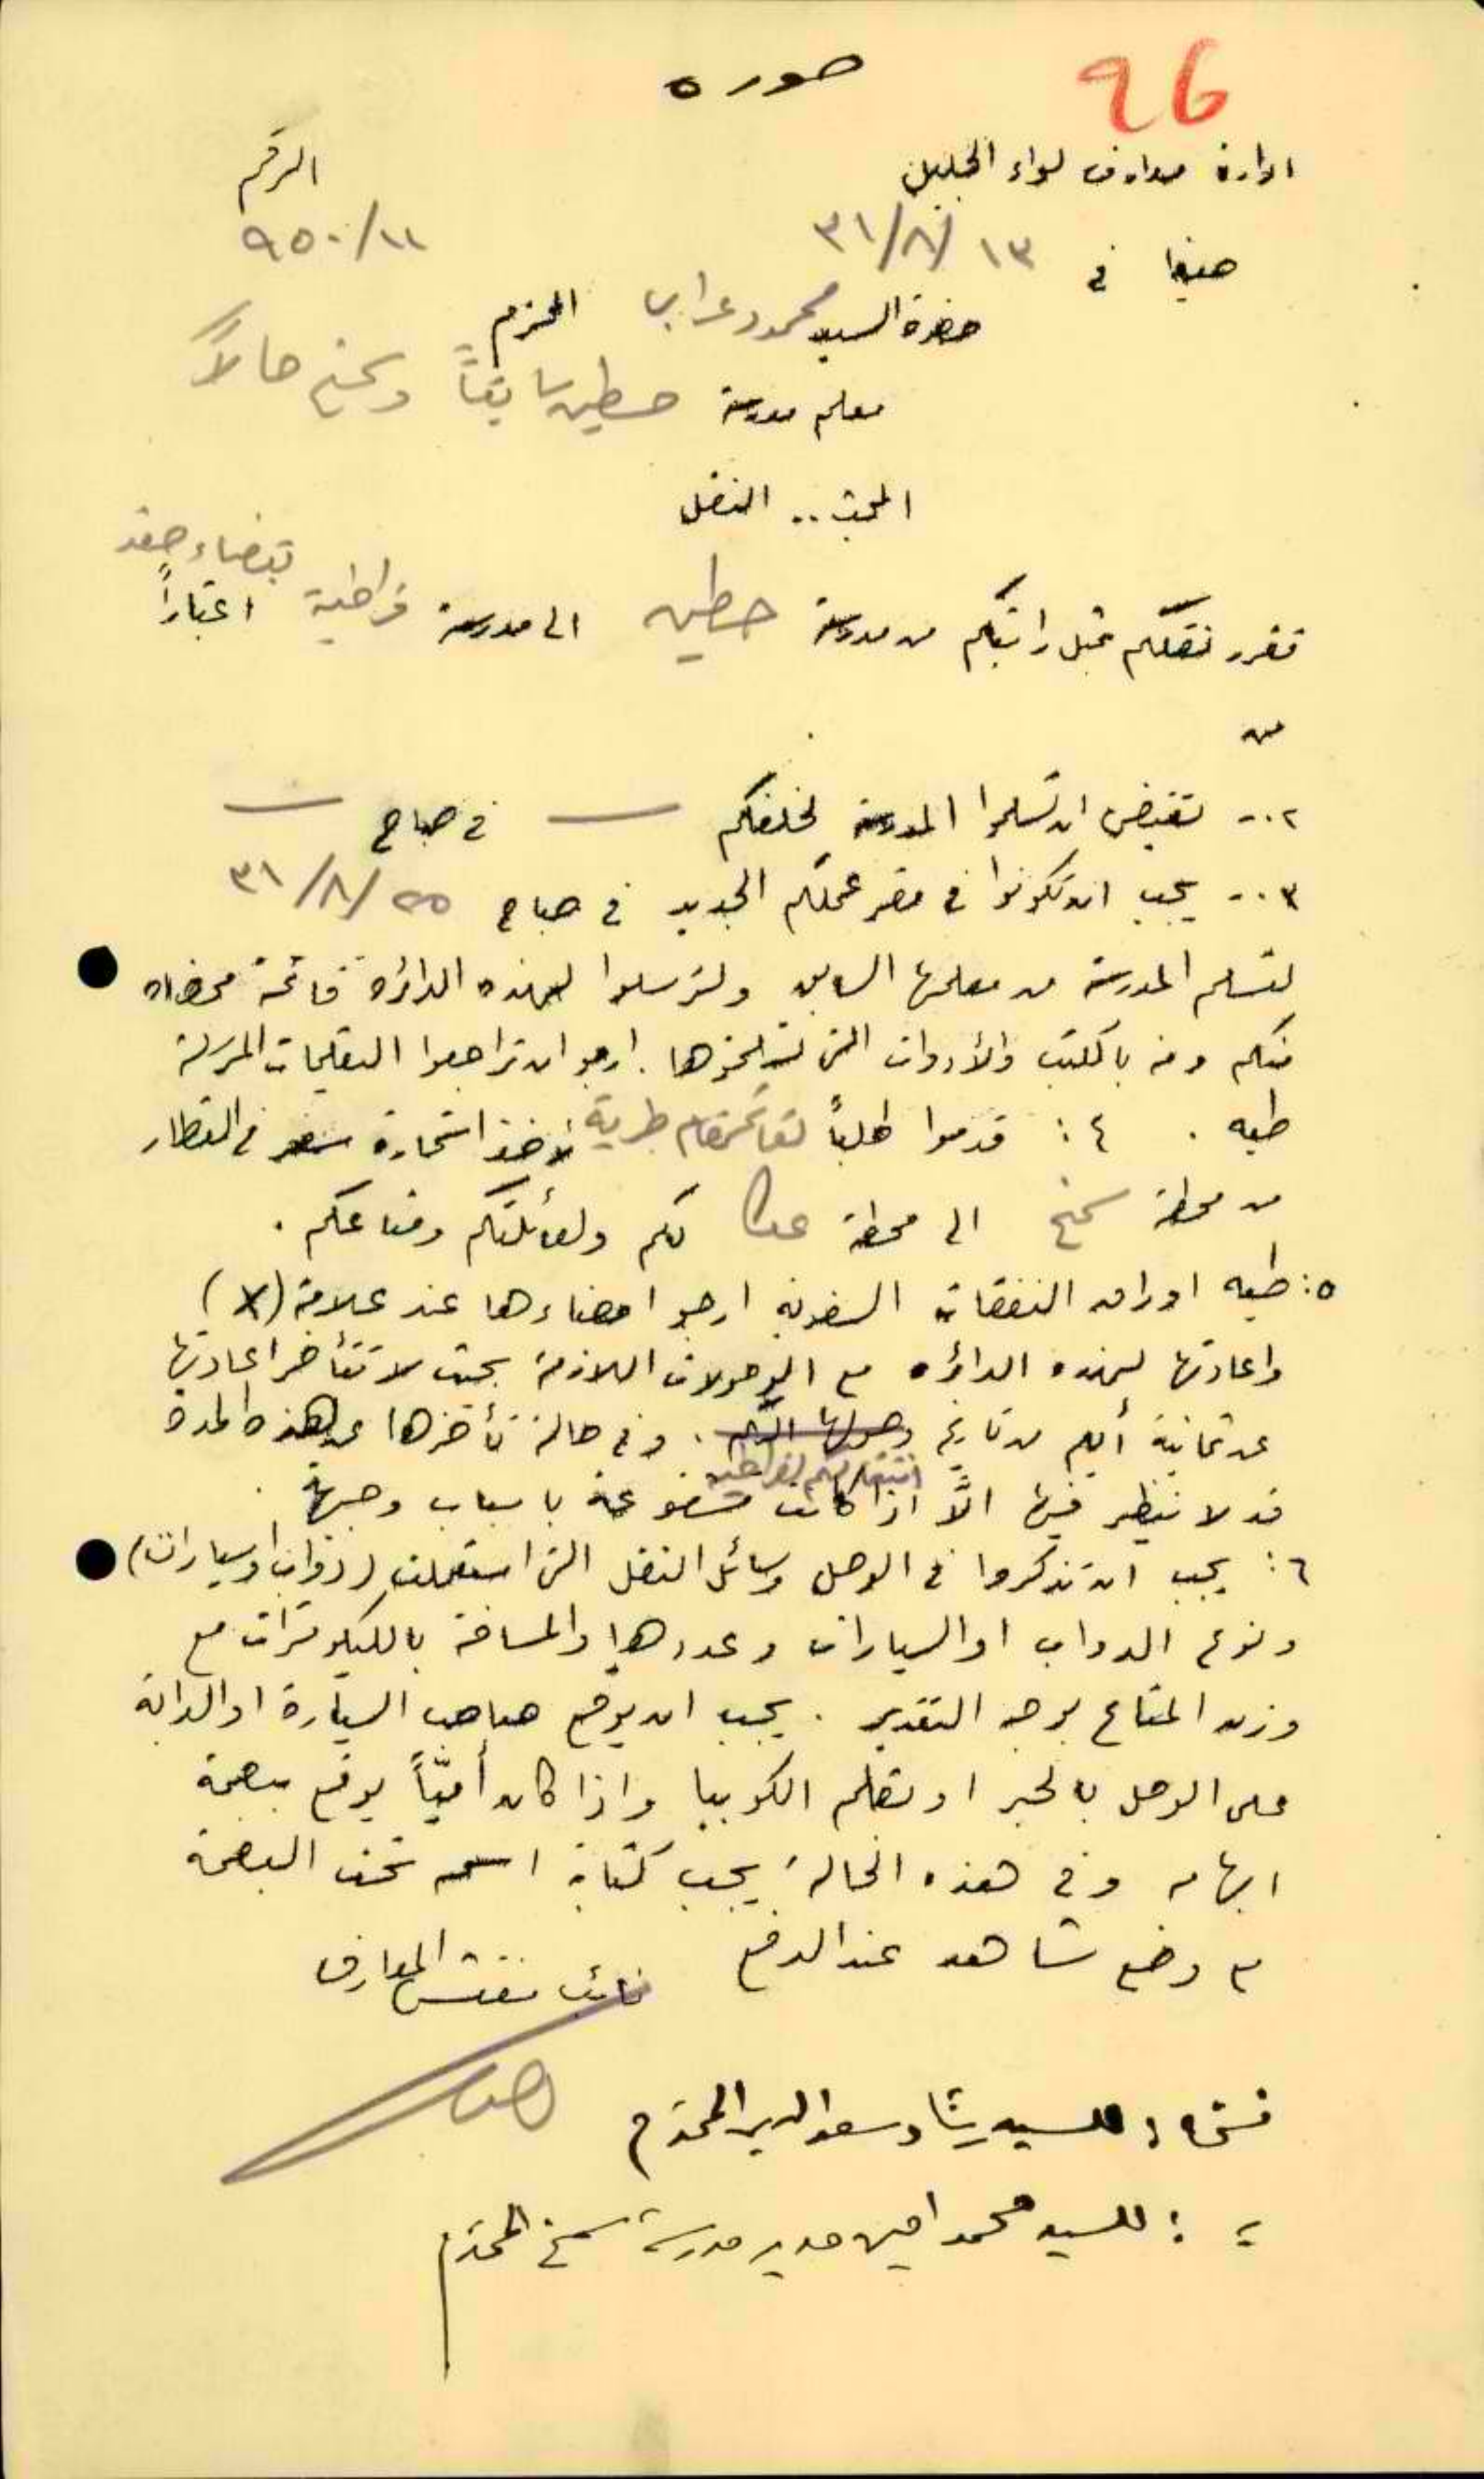 صوره
96
ادارة معارف لواء الجليل
الرقم
حيفا في ١٣/٨/٣١
٩٥٠/١١
حضرة السيد محمود عرابي المحترم
معلم مدرسة حطين سابقاً وسمخ حالاً
المبحث .. النقل
بقضاء صفد
تقرر نقلكم بمثل راتبكم من مدرسة حطين الى مدرسة فراضية اعتباراً
من
٢.- تقتضي ان تسلموا المدرسة لخلفكم — في صباح —
٣.- يجب ان تكونوا في مقر عملكم الجديد في صباح ٢٥/٨/٣١
لتسلم المدرسة من معلمها السابق ولترسلوا لهذه الدائرة قائمة ممضاه
منكم ومنه بالكتب والأدوات التي تستلمونها. ارجو ان تراجعوا التعليمات المرسلة
طيه . ٤: قدموا طلباً لقائمقام طبرية لأخذ استمارة سفر في القطار
من محطة سمخ الى محطة عكا لكم ولعائلتكم ومتاعكم .
٥: طيه اوراق النفقات السفرية ارجو امضاءها عند علامة (X)
واعادتها لهذه الدائرة مع الوصولات اللازمة بحيث لا تتأخر اعادتها
عن ثمانية أيام من تاريخ وصولها اليكم . وفي حالة تأخرها عن هذه المدة
انتقالكم لفراضية
قد لا ينظر فيها الاَّ اذا كانت مشفوعة باسباب وجيهة .
٦: يجب ان تذكروا في الوصل وسائل النقل التي استعملت (دواب او سيارات)
ونوع الدواب او السيارات وعددها والمسافة بالكيلومترات مع
وزن المتاع بوجه التقدير . يجب ان يوقع صاحب السيارة او الدابة
على الوصل بالحبر او بقلم الكوبيا واذا كان أميّاً يوقع ببصمة
ابهامه وفي هذه الحالة يجب كتابة اسمه تحت البصمة
مع وضع شاهد عند الدفع
نائب مفتش المعارف
نسخة : للسيد رشاد سعد الدين المحترم
= : للسيد محمد امين مدير مدرسة سمخ المحترم